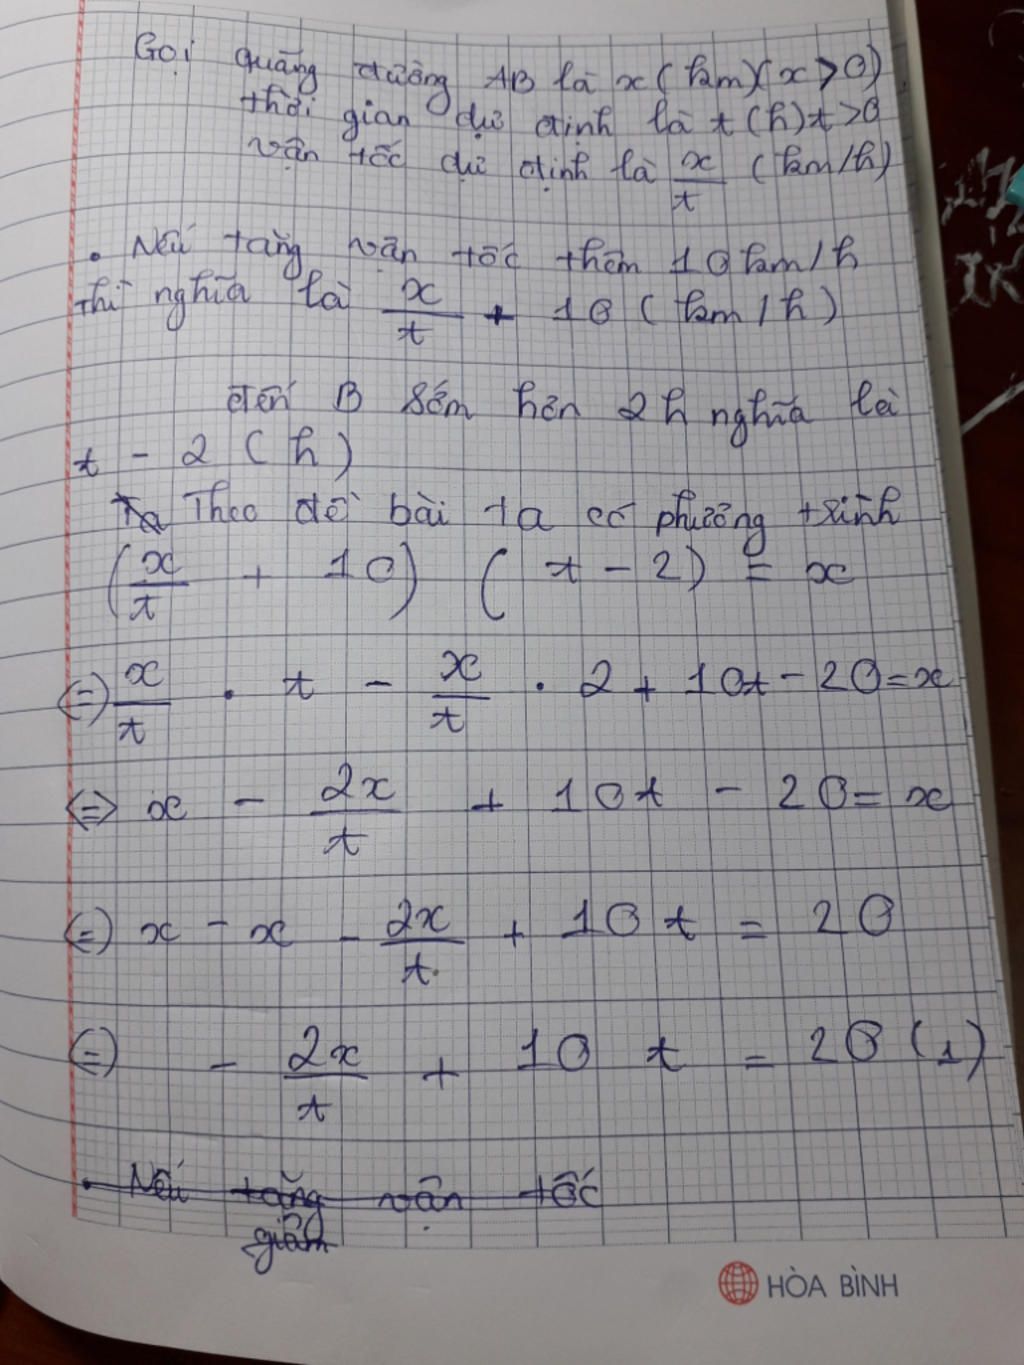 Gọi quãng đường AB là x (km) (x > 0)
thời gian dự định là t (h) t > 0
vận tốc dự định là x/t (km/h)
. Nếu tăng vận tốc thêm 10 km/h
thì nghĩa là x/t + 10 (km/h)
đến B sớm hơn 2h nghĩa là
t - 2 (h)
Ta Theo đề bài ta có phương trình
(x/t + 10) (t - 2) = x
(=) x/t . t - x/t . 2 + 10t - 20 = x
<=> x - 2x/t + 10t - 20 = x
(=) x - x - 2x/t + 10t = 20
(=) - 2x/t + 10 t = 20 (1)
. Nếu tăng vận tốc
giảm
HÒA BÌNH